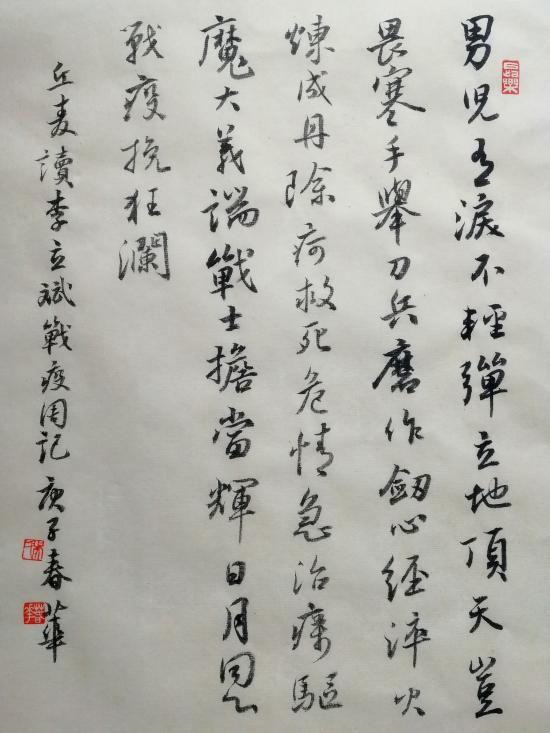 男兒有淚不輕彈立地頂天豈
畏寒手舉刀兵磨作劍心經淬火
煉成丹除疴救死危情急治療驅
魔大義端戰士擔當輝日月同心
戰疫挽狂瀾
丘麦讀李立斌戰疫周記 庚子春華